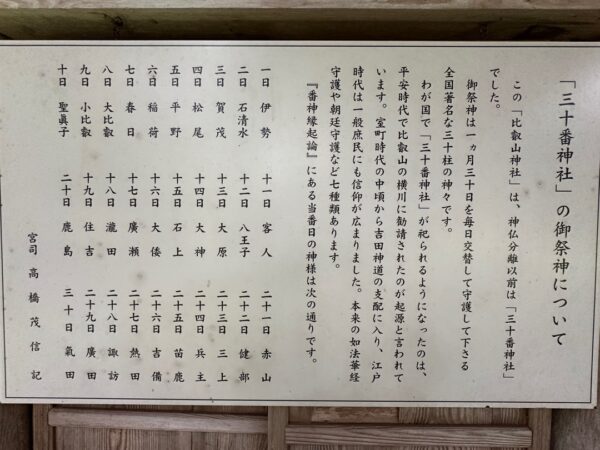 「三十番神社」の御祭神について
この「比叡山神社」は、神仏分離以前は「三十番神社」
でした。
御祭神は一ヵ月三十日を毎日交替して守護して下さる
全国著名な三十柱の神々です。
わが国で「三十番神社」が祀られるようになったのは、
平安時代で比叡山の横川に勧請されたのが起源と言われて
います。室町時代の中頃から吉田神道の支配に入り、江戸
時代は一般庶民にも信仰が広まりました。本来の如法華経
守護や朝廷守護など七種類あります。
『番神縁起論』にある当番日の神様は次の通りです。
一日 伊勢 十一日 客人 二十一日 赤山
二日 石清水 十二日 八王子 二十二日 健部
三日 賀茂 十三日 大原 二十三日 三上
四日 松尾 十四日 大神 二十四日 兵主
五日 平野 十五日 石上 二十五日 苗鹿
六日 稲荷 十六日 大倭 二十六日 吉備
七日 春日 十七日 廣瀬 二十七日 熱田
八日 大比叡 十八日 瀧田 二十八日 諏訪
九日 小比叡 十九日 住吉 二十九日 廣田
十日 聖眞子 二十日 鹿島 三十日 氣田
宮司 高橋茂信 記